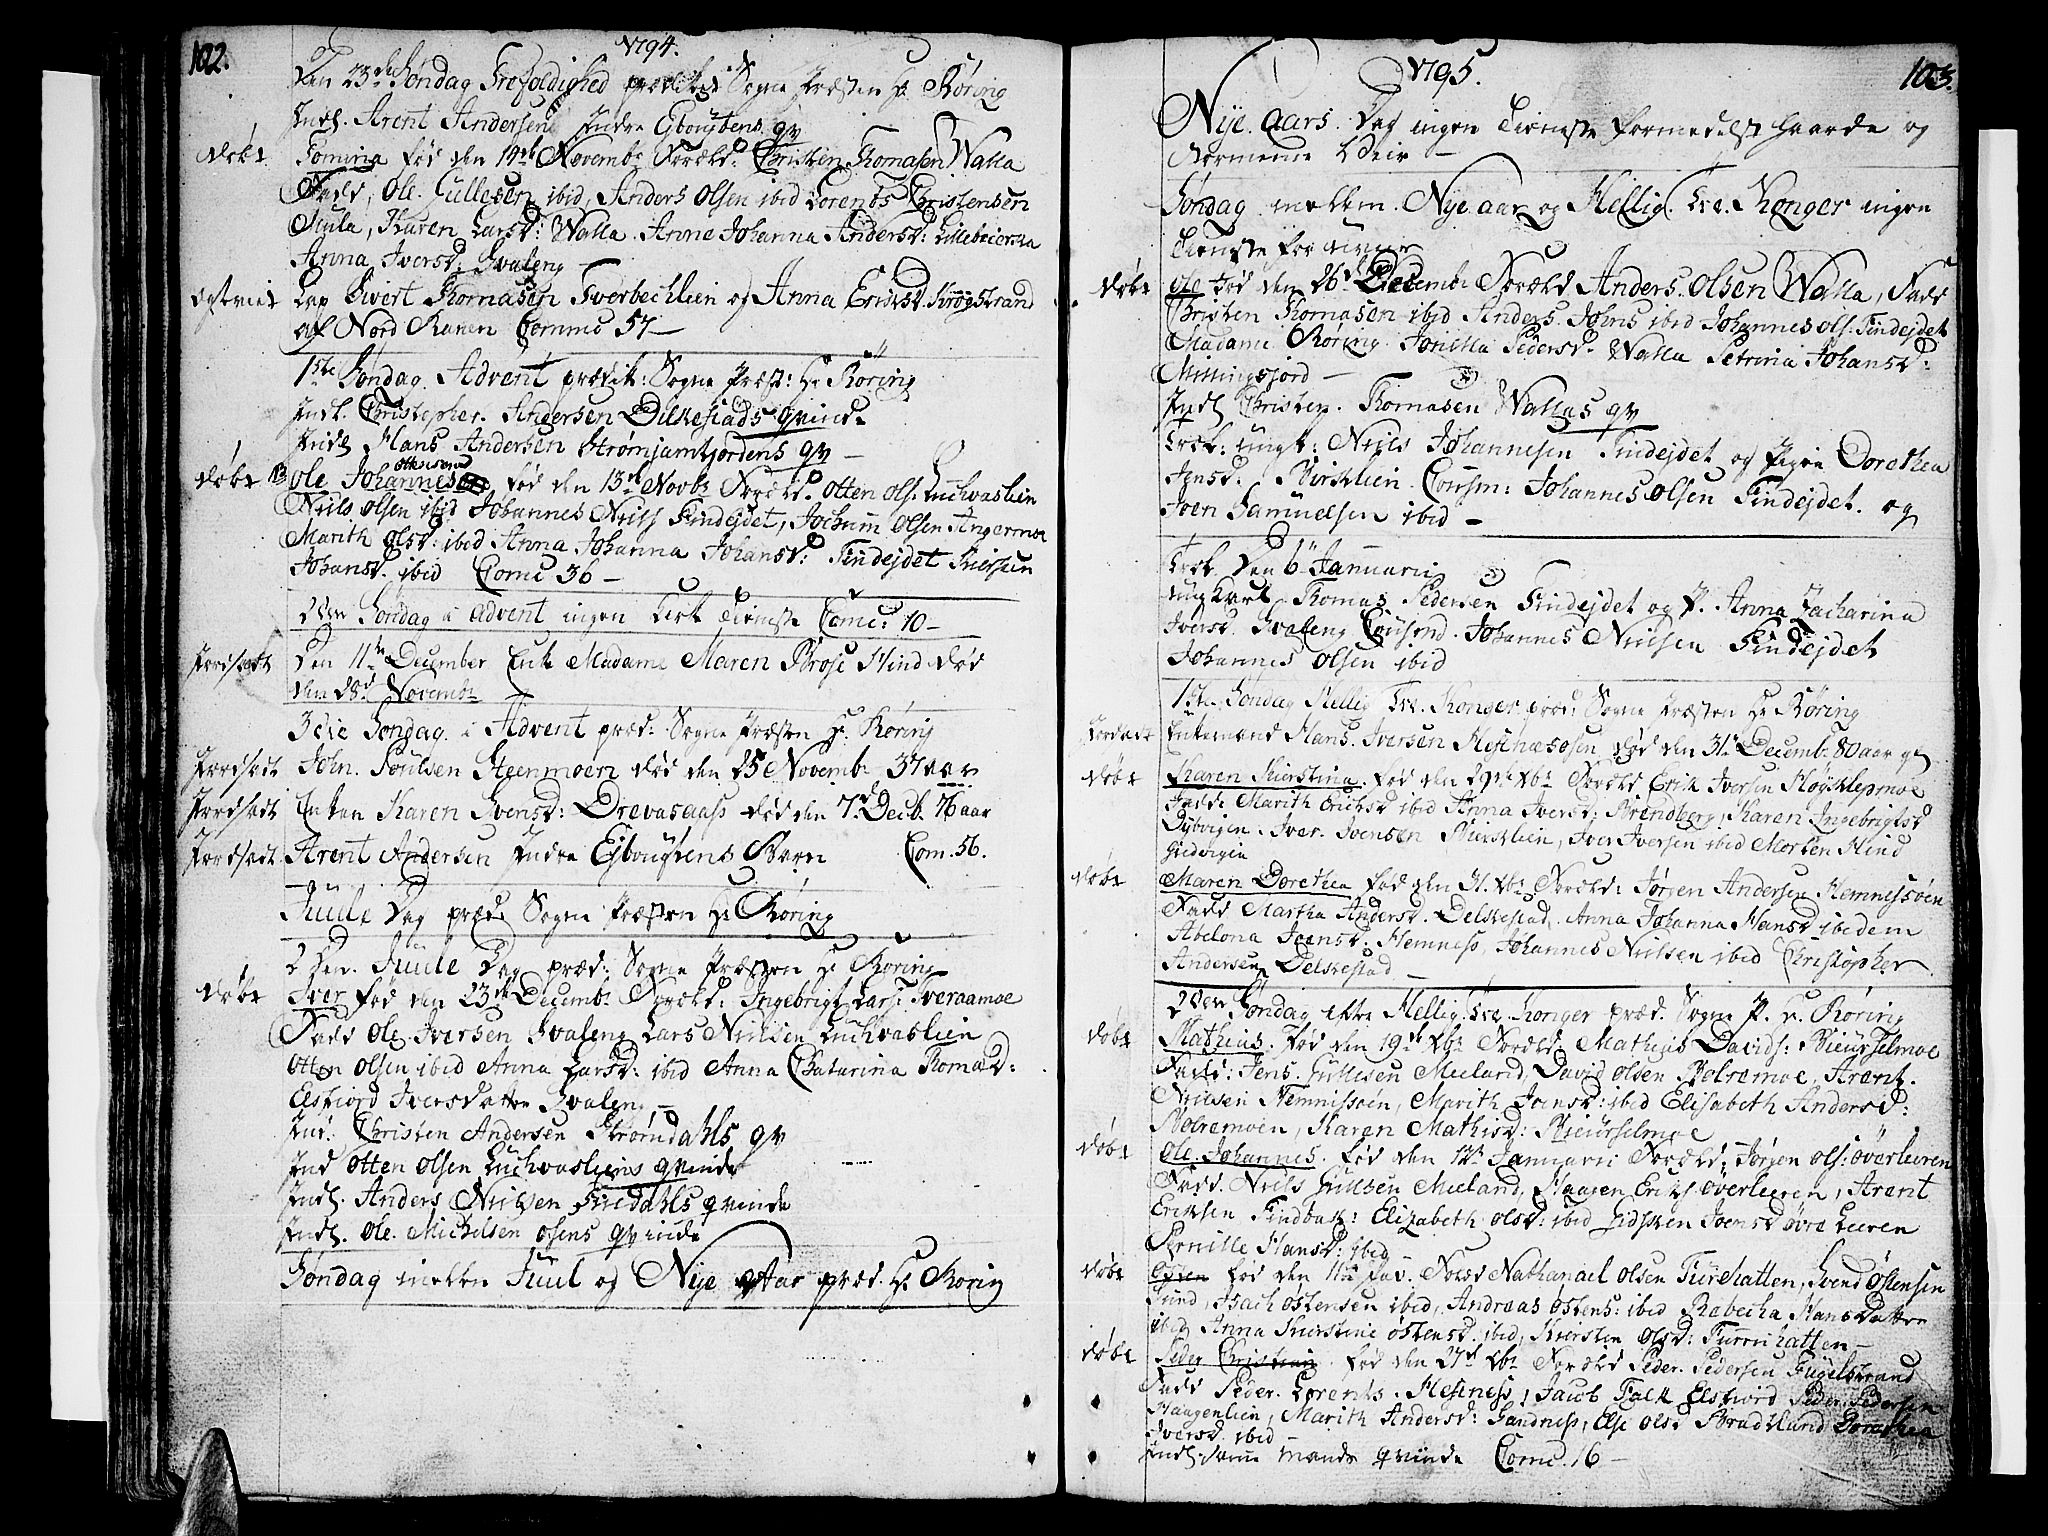 102.
1794.
Den 23de Søndag Trefoldighed præd: Sogne Præsten Hr Røring
Indl. Arent Andersens Indre Ejbougtens qv
Døbt Tomina fød den 14de Novembr Foræld: Christen Thomasen Walla
Fadd, Ole Gullesen ibid, Anders Olsen ibid Lorents Christensen
Karen Larsd: Walla Anne Johanna Andersd:
Anna Iversd: Svaleng
Lap Sivert Thomasen Tverbechlien og Anna Ericksd. Krogstrand
af Nord Ranen Comme 57
1ste Søndag Advent prædik: Sogne Præst: Hr Røring
Intl. Christopher Andersen Dilkestads qvinde
Indl Hans Andersen Strømjamtjordens qv
Døbt 13 Ole Johannes fød den 13de Novbr Foræld. Otten Ols. Luchvaslien
Niils Olsen ibid Johannes Niils Findejdet, Jochum Olsen Angermoe
Marith Olsd: ibid Anna Johanna Johansd: Findejdet
Johansd. ibid Comu 36
2den Søndag i Advent ingen Kirke Tieneste Comu: 10
Jordsadt Den 11te December Enke Madame Maren Brose Hind død
den 28d Novembr
3die Søndag i Advent præd: Sogne Præsten Hr. Røring
Jordsadt John Poulsen Steenmoen død den 25 Novembr 37 aar
Jordsadt Enken Karen Svensd: Drevasaas død den 7d Decbr. 76 aar
Jordsadt Arent Andersen Indre Ejbougtens Barn Com. 56.
Juule Dag præd: Sogne Præsten Hr Røring
2den Juule Dag præd: Sogne Præsten Hr Røring
Døbt Iver fød den 23de Decembr Foræld: Ingebrigt Lars: Tveraamoe
Fadd Ole Iversen Svaleng Lars Nielsen Luchvaslien
Otten Olsen ibid Anna Larsd: ibid Anna Chatarina Thomæd:
Elsfiord Iversdatter Svaleng
Int: Christen Andersen Strømdahls qv
Ind Otten Olsen Luchvasliens qvinde
Indl. Anders Nielsen Finedahls qvinde
Indl. Ole Michelsen Osens qvinde
Søndag mellem Juul og Nye Aar præd. Hr. Røring
103.
1795.
Nye Aars Dag ingen Tieneste formedelst haarde og
stormende Veir
Søndag mellem Nye aar og Hellig Tre Konger ingen
Tieneste for
Døbt Ole fød den 26d Decembr Foræld Anders Olsen Walla, Fadd
Christen Thomasen ibid Anders Johns ibid Johannes Ols: Findejdet
Madame Røring Jonetta Pedersd. Walla Petrina Johansd:
Millingsjord
Indl Christen Thomasen Wallas qv
Trol: ungk: Niils Johannesen Findejdet og Pigen Dorethea
Jensd. Birchlien Causm: Johannes Olsen Findejdet og
Joen Samuelsen ibid
Trol. Den 6te Januarii
ungkarl Thomas Pedersen Findejdet og P. Anna Zacharina
Iversd. Svaleng Causmd. Johannes Nielsen Findejdet
Johannes Olsen ibid
1ste Søndag Hellig Tre Konger præd: Sogne Præsten Hr Røring
Jordsadt Enkemand Hans Iversen død den 31te Decembr 80 aar gl
Døbt Karen Kierstina fød den 29de xbr Foræld Erik Iversen Høgklepmoe
Fadd: Marith Ericksd ibid Anna Iversd: Brendberg, Karen Ingebrigtsd
Dybvigen Iver Joensen Birchlien, Iver Iversen ibid Morten Hind
Giedvigen
Døbt Maren Dorethea fød den 31. xbr Foræld: Jørgen Andersen Hemnessøen
Fadd Martha Andersd. Delkestad, Anna Johanna Hansd ibidem
Abelona Joensd: Hemness, Johannes Nielsen ibid Christopher
Andersen Delkestad
2den Søndag efter Hellig Tre Konger præd. Sogne P. Hr. Røring
Døbt Mathias. fød den 19de xbr Foræld: Mathias Davids:
Fadd: Jens Gullesen Meeland, David Olsen Bolremoe, Arent
Nielsen Hemnissøen, Marith Joensd: ibid Elisabeth Andersd:
Bolremoen, Karen Mathisd:
Døbt Ole Johannes. fød den 12te Januarii Foræld: Jørgen Ols: Øverleeren
Fadd. Niels Gullesen Meeland, Haagen Eriks. Overleeren, Arent
Eriksen Findbak: Elizabeth Olsd: ibid Joensd Øvre Leeren
Pernille Hansd: ibid
Døbt fød den 11te Jav. Foræld Nathanael Olsen Furehatten, Svend Østensen
Sund, Isach Østensen ibid, Andreas Østens: ibid Rebecka Hansdatter
ibid Anna Kierstine Østensd. ibid, Kiersten Olsd: Furrihatten
Døbt Peder Christian fød den 27d xbr Foræld Peder Pedersen Fugelstrand
Fadd Peder Lorents. Hesness, Jacob Falk Elsfiord Peder Pedersen
Haagenlien, Marith Andersd: Sandness, Else Olsd Bradtlund Dorethea
Iversd. ibid
Indl. samme Mands qvinde Comu. 16